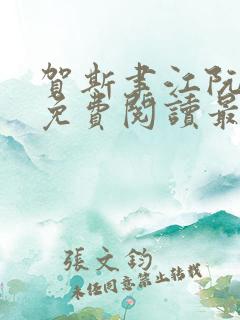 賀斯聿江阮
免費閱讀最
張文鈞
未經同意禁止轉載